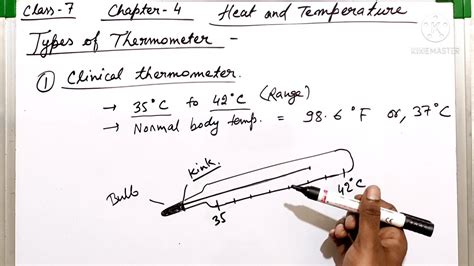 Class-7 Chapter-4 Heat and Temperature
Types of Thermometer -
① Clinical thermometer.
→ 35°C to 42°C (Range)
→ Normal body temp. = 98.6°F or, 37°C
Kink
Bulb
35
42°C
KINEMASTER